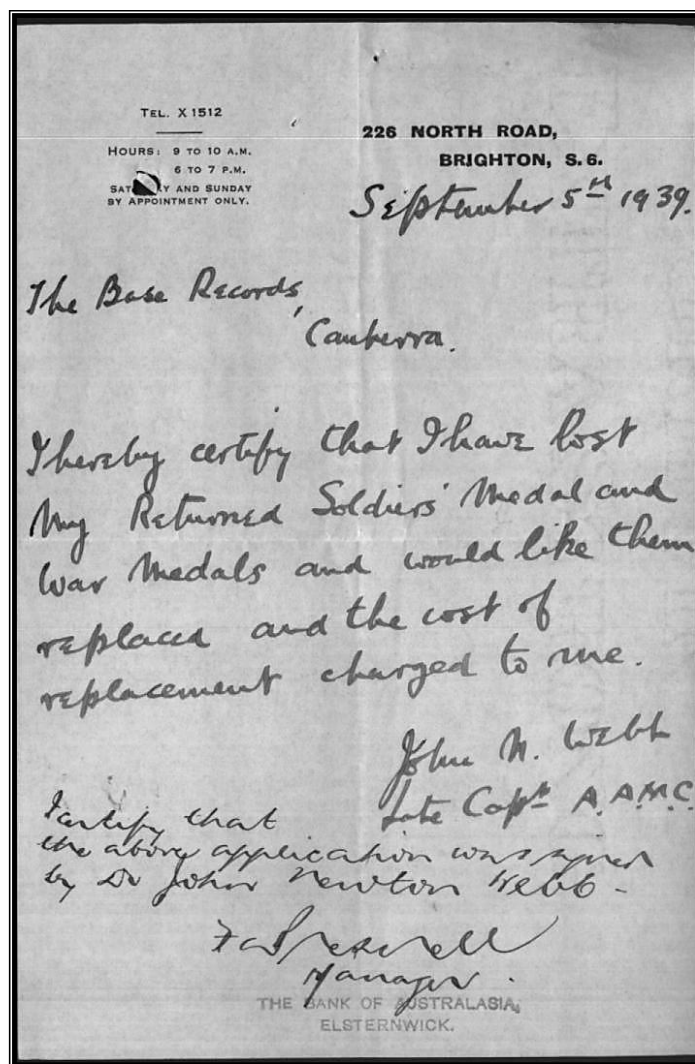 TEL. X 1512
HOURS: 9 TO 10 A.M.
6 TO 7 P.M.
SAT Y AND SUNDAY
BY APPOINTMENT ONLY.
226 NORTH ROAD,
BRIGHTON, S. 6.
September 5th 1939.
The Base Records,
Canberra.
I hereby certify that I have lost
my Returned Soldiers' Medal and
War Medals and would like them
replaced and the cost of
replacement charged to me.
John N. Webb
Late Capt A.A.M.C.
I certify that
the above application was signed
by Dr John Newton Webb -
Manager.
THE BANK OF AUSTRALASIA,
ELSTERNWICK.